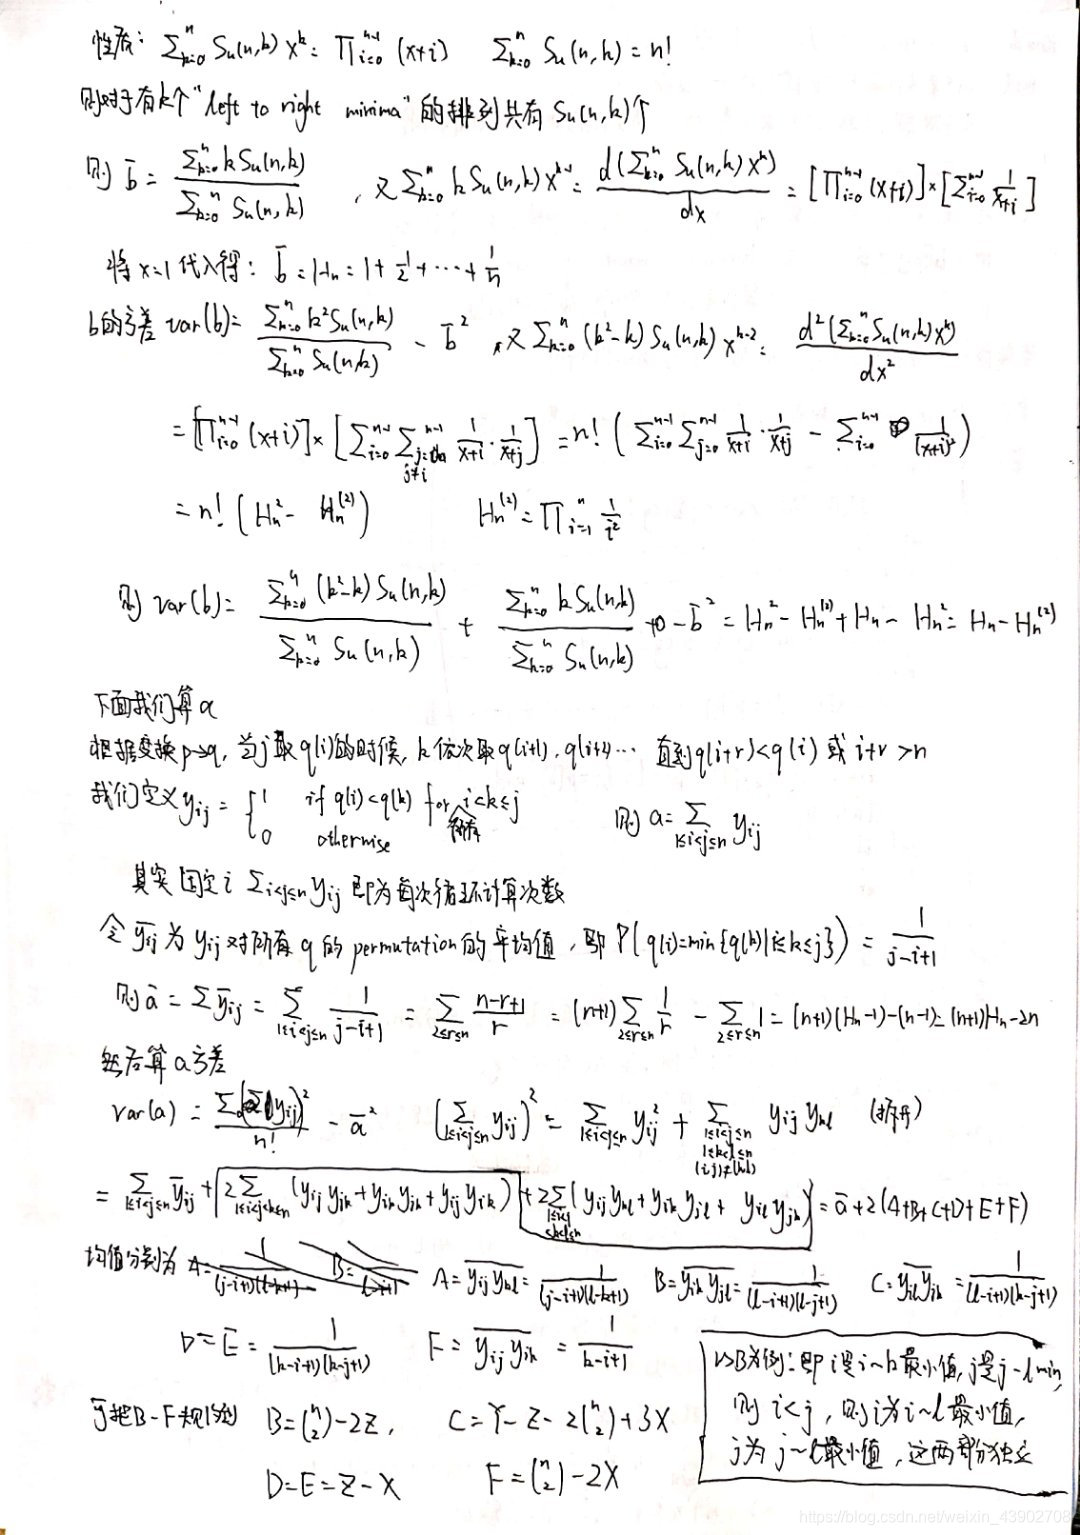 性质: ∑_{k=0}^{n} Su(n,k) x^k = ∏_{i=0}^{n-1} (x+i)    ∑_{k=0}^{n} Su(n,k) = n!
则对于有k个"left to right minima"的排列共有 Su(n,k)个
则 b̄ = ∑_{k=0}^{n} k Su(n,k) / ∑_{k=0}^{n} Su(n,k) , 又 ∑_{k=0}^{n} k Su(n,k) x^{k-1} = d(∑_{k=0}^{n} Su(n,k) x^k) / dx = [∏_{i=0}^{n-1} (x+i)] × [∑_{i=0}^{n-1} 1/(x+i)]
将 x=1 代入得: b̄ = Hn = 1 + 1/2 + ⋯ + 1/n
b的方差 var(b) = ∑_{k=0}^{n} k² Su(n,k) / ∑_{k=0}^{n} Su(n,k) - b̄² , 又 ∑_{k=0}^{n} (k²-k) Su(n,k) x^{k-2} = d²(∑_{k=0}^{n} Su(n,k) x^k) / dx²
= [∏_{i=0}^{n-1} (x+i)] × [∑_{i=0}^{n-1} ∑_{j=0, j≠i}^{n-1} 1/(x+i) · 1/(x+j)] = n! (∑_{i=0}^{n-1} ∑_{j=0}^{n-1} 1/(x+i) · 1/(x+j) - ∑_{i=0}^{n-1} 1/(x+i)²)
= n! (Hn² - Hn^{(2)})    Hn^{(2)} = ∏_{i=1}^{n} 1/i²
则 var(b) = ∑_{k=0}^{n} (k²-k) Su(n,k) / ∑_{k=0}^{n} Su(n,k) + ∑_{k=0}^{n} k Su(n,k) / ∑_{k=0}^{n} Su(n,k) - b̄² = Hn² - Hn^{(2)} + Hn - Hn² = Hn - Hn^{(2)}
下面我们算 a
根据变换 p→q, 当j取q(i)的时候, k依次取q(i+1), q(i+2)⋯ 直到q(i+r)<q(i) 或 i+r>n
我们定义 yij = { 1 if q(i)<q(k) for 所有 i<k≤j    则 a = ∑_{1≤i<j≤n} yij
0 otherwise
其实固定i ∑_{i<j≤n} yij 即为每次循环计算次数
令 ȳij 为 yij 对所有 q 的 permutation 的平均值, 即 P(q(i)=min{q(k)|i≤k≤j}) = 1/(j-i+1)
则 ā = ∑ ȳij = ∑_{1≤i<j≤n} 1/(j-i+1) = ∑_{2≤r≤n} (n-r+1)/r = (n+1) ∑_{2≤r≤n} 1/r - ∑_{2≤r≤n} 1 = (n+1)(Hn-1)-(n-1) = (n+1)Hn-2n
然后算 a 方差
var(a) = ∑(∑ yij)² / n! - ā²    (∑_{1≤i<j≤n} yij)² = ∑_{1≤i<j≤n} yij² + ∑_{1≤i<j≤n, 1≤k<l≤n, (i,j)≠(k,l)} yij ykl    (拆开)
= ∑_{1≤i<j≤n} ȳij + 2∑_{1≤i<j<k≤n} (yij yjk + yik yjk + yij yik) + 2∑_{1≤i<j<k<l≤n} (yij ykl + yik yjl + yil yjk) = ā + 2(A+B+C+D+E+F)
均值分别为 A = \overline{yij ykl} = 1/((j-i+1)(l-k+1))    B = \overline{yik yjl} = 1/((l-i+1)(l-j+1))    C = \overline{yil yjk} = 1/((l-i+1)(k-j+1))
D = E = 1/((k-i+1)(k-j+1))    F = \overline{yij yik} = 1/(k-i+1)
以B为例: 即 i是i~k最小值, j是j~l min,
则 i<j, 则i为i~l最小值,
j为j~l最小值, 这两部分独立
可把B-F B = (n 2) - 2Z,    C = Y - Z - 2(n 2) + 3X
D = E = Z - X    F = (n 2) - 2X
https://blog.csdn.net/weixin_43902708